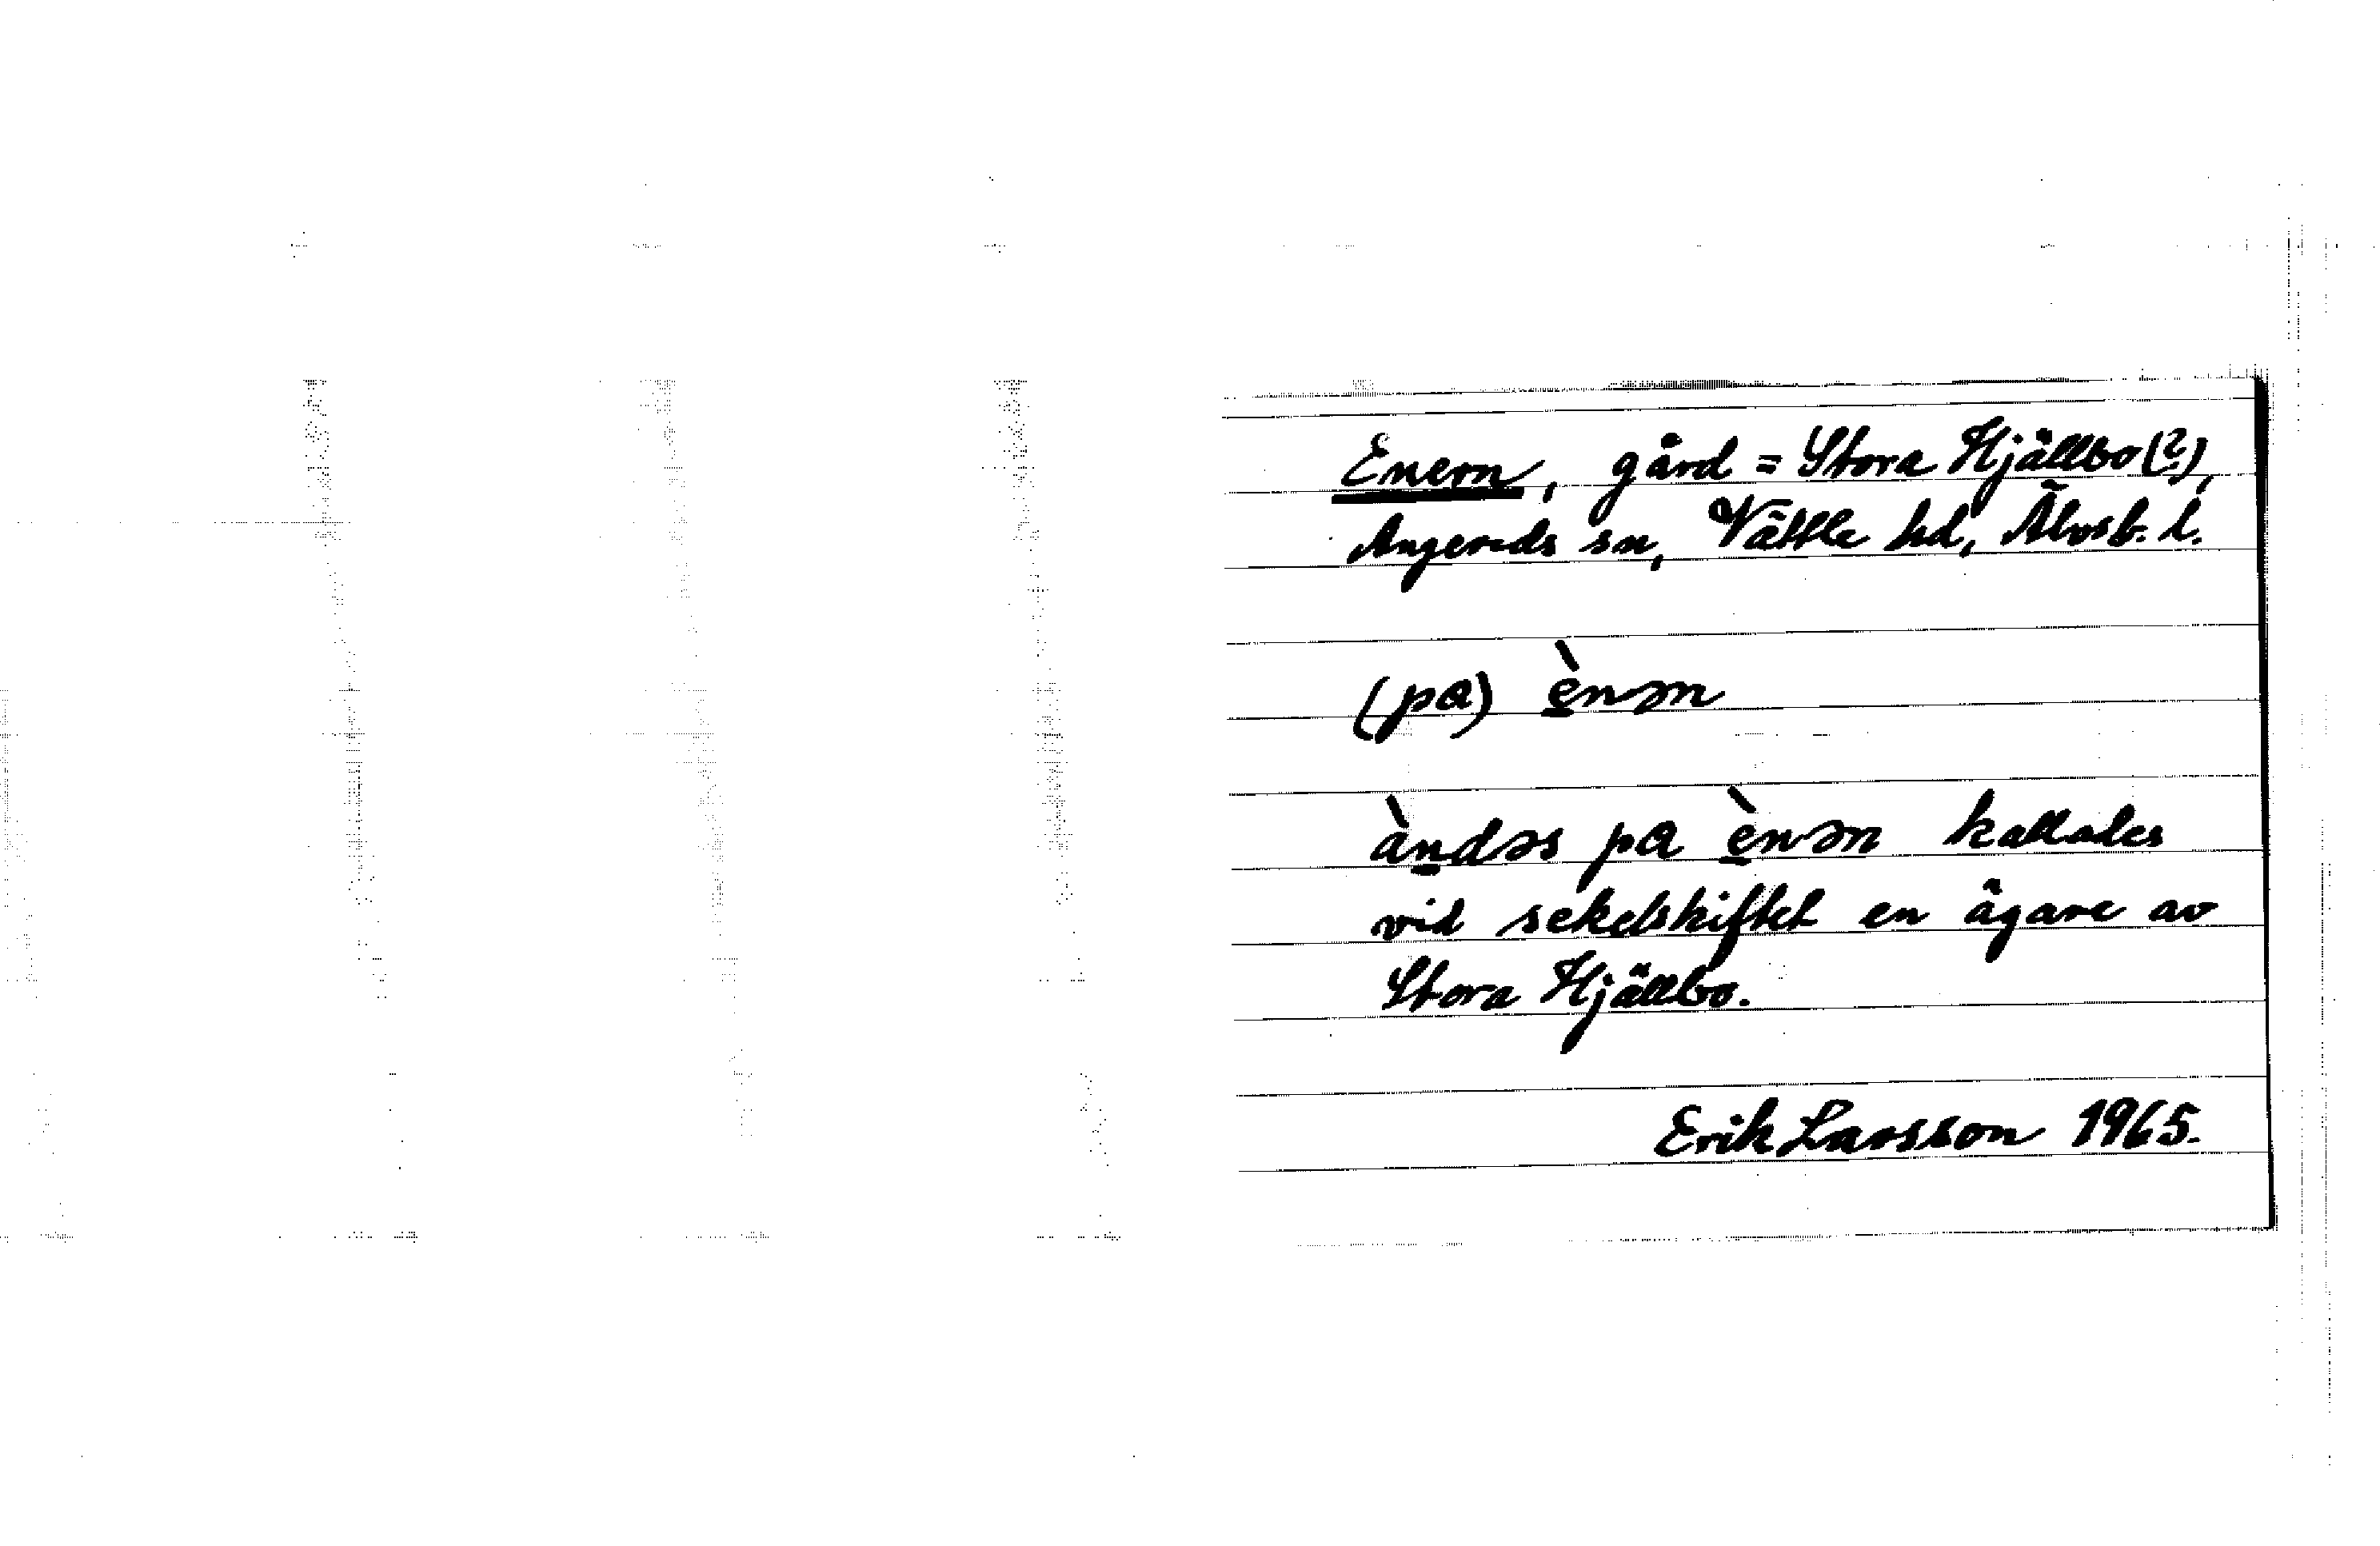 Enern, gård = Stora Hjällbo (?),
Angereds sn, Vättle hd, Älvsb. l.
(pɑ) è̱nəṇ
àṉdəs pɑ è̱nəṇ kallades
vid sekelskiftet en ägare av
Stora Hjällbo.
Erik Larsson 1965.